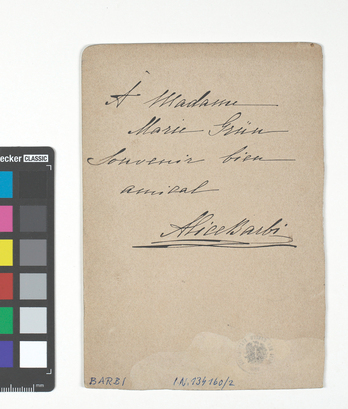 À Madame
Marie Grün
Souvenir bien
amical
Alice Barbi
BARBI I.N. 134160/2
ecker CLASSIC
mm